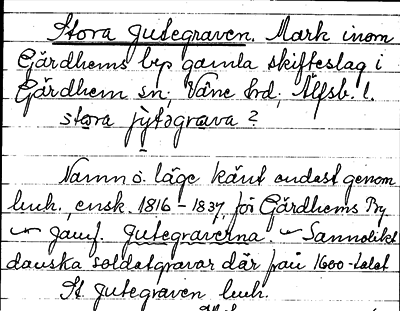 Stora Jutegraven. Mark inom
Gärdhems bys gamla skifteslag i
Gärdhem sn, Väne hd, Älfsb. l.
stora jytəgrava ?
Namn o. läge känt endast genom
lmh. ensk. 1816-1837, för Gärdhems By
~ Jämf. Jutegraverna. ~ Sannolikt
danska soldatgravar där från 1600-talet
St Jutegraven lmh.